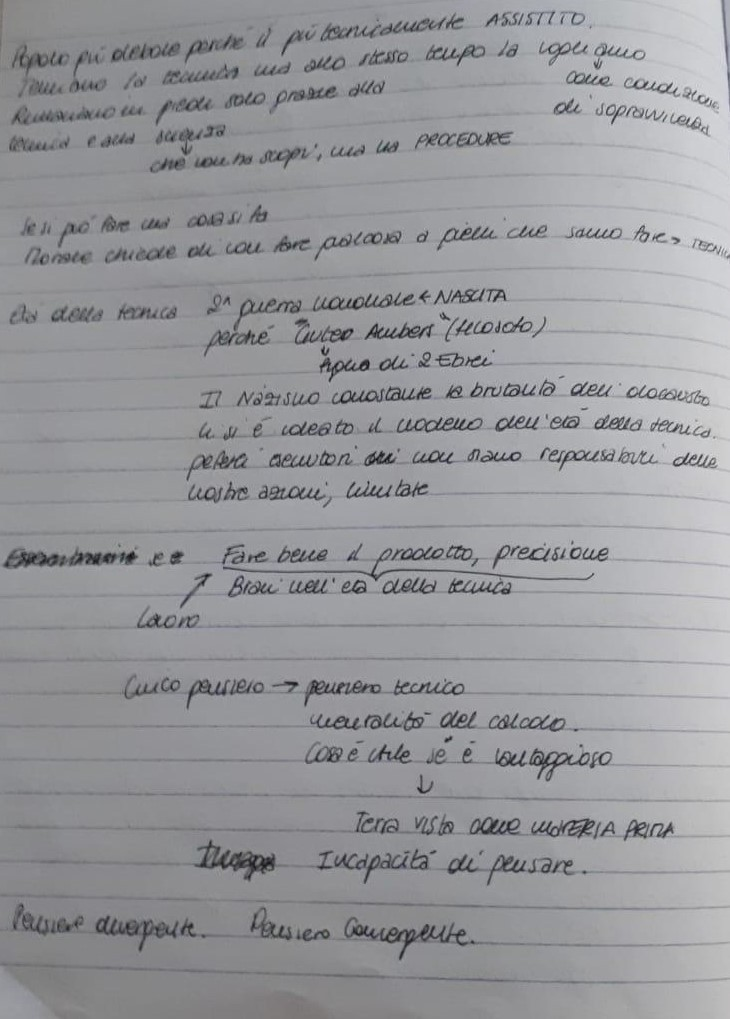 Popolo più debole perché il più tecnicamente ASSISTITO.
Temiamo la tecnica ma allo stesso tempo la vogliamo
come condizione
Rimaniamo in piedi solo grazie alla
di sopravvivenza
tecnica e alla scienza
che non ha scopi, ma ha PROCEDURE
Se si può fare una cosa si fa
Morale chiede di non fare qualcosa a quelli che sanno fare → TECNICA
Età della tecnica 2ª guerra mondiale ← NASCITA
perché "Guten Ambers" (filosofo)
Figlio di 2 Ebrei
Il Nazismo nonostante la brutalità dell'olocausto
lì si è ideato il modello dell'età della tecnica.
esecutori non siamo responsabili delle
nostre azioni, limitate
Fare bene il prodotto, precisione
Bravi nell'età della tecnica
Lavoro
Unico pensiero → pensiero tecnico
mentalità del calcolo.
Cosa è utile se è vantaggioso
↓
Terra vista come MATERIA PRIMA
Incapacità di pensare.
Pensiero divergente. Pensiero Convergente.